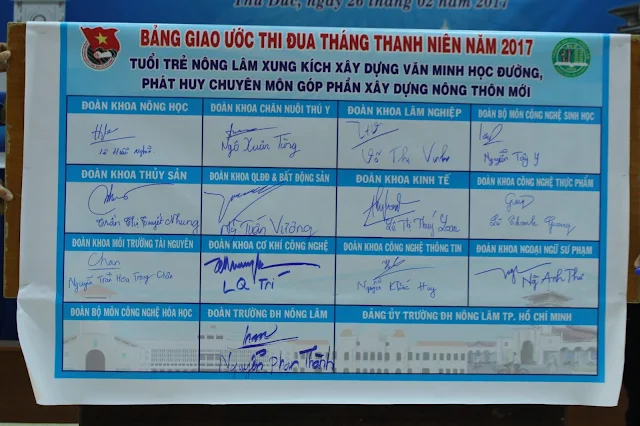 Thủ Đức, ngày 26 tháng 02 năm 2017
BẢNG GIAO ƯỚC THI ĐUA THÁNG THANH NIÊN NĂM 2017
TUỔI TRẺ NÔNG LÂM XUNG KÍCH XÂY DỰNG VĂN MINH HỌC ĐƯỜNG,
PHÁT HUY CHUYÊN MÔN GÓP PHẦN XÂY DỰNG NÔNG THÔN MỚI
ĐOÀN KHOA NÔNG HỌC
ĐOÀN KHOA CHĂN NUÔI THÚ Y
ĐOÀN KHOA LÂM NGHIỆP
ĐOÀN BỘ MÔN CÔNG NGHỆ SINH HỌC
Ngô Xuân Tùng
Nguyễn Tây Y
ĐOÀN KHOA THỦY SẢN
ĐOÀN KHOA QLĐĐ & BẤT ĐỘNG SẢN
ĐOÀN KHOA KINH TẾ
ĐOÀN KHOA CÔNG NGHỆ THỰC PHẨM
Trần Thị Tuyết Nhung
Ng Tuấn Vương
ĐOÀN KHOA MÔI TRƯỜNG TÀI NGUYÊN
ĐOÀN KHOA CƠ KHÍ CÔNG NGHỆ
ĐOÀN KHOA CÔNG NGHỆ THÔNG TIN
ĐOÀN KHOA NGOẠI NGỮ SƯ PHẠM
Nguyễn Trần Hòa Trang Châu
LQ Trí
Nguyễn Khắc Huy
Ng Anh Thư
ĐOÀN BỘ MÔN CÔNG NGHỆ HÓA HỌC
ĐOÀN TRƯỜNG ĐH NÔNG LÂM
ĐẢNG ỦY TRƯỜNG ĐH NÔNG LÂM TP. HỒ CHÍ MINH
Nguyễn Phan Thành